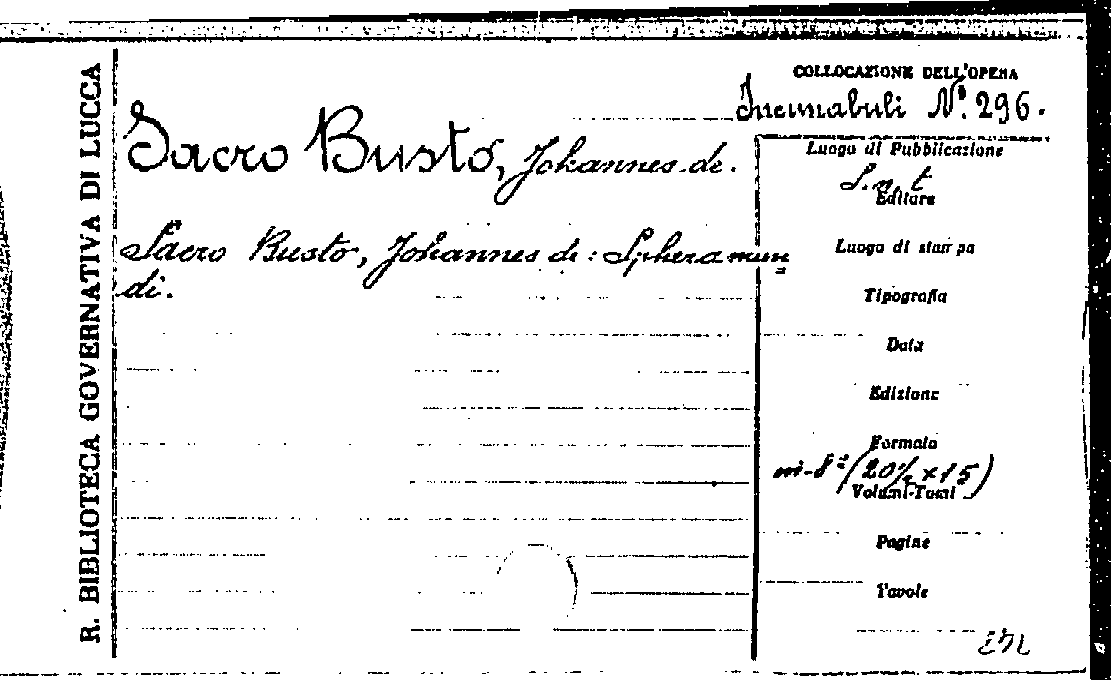 R. BIBLIOTECA GOVERNATIVA DI LUCCA
COLLOCAZIONE DELL'OPERA
Incunabuli N.º 296.
Sacro Busto, Johannes de.
Sacro Busto, Johannes de: Sphera mun=
di.
Luogo di Pubblicazione
S.n.t
Editore
Luogo di stampa
Tipografia
Data
Edizione
Formato
in-8º (20½ x 15)
Volumi-Tomi
Pagine
Tavole